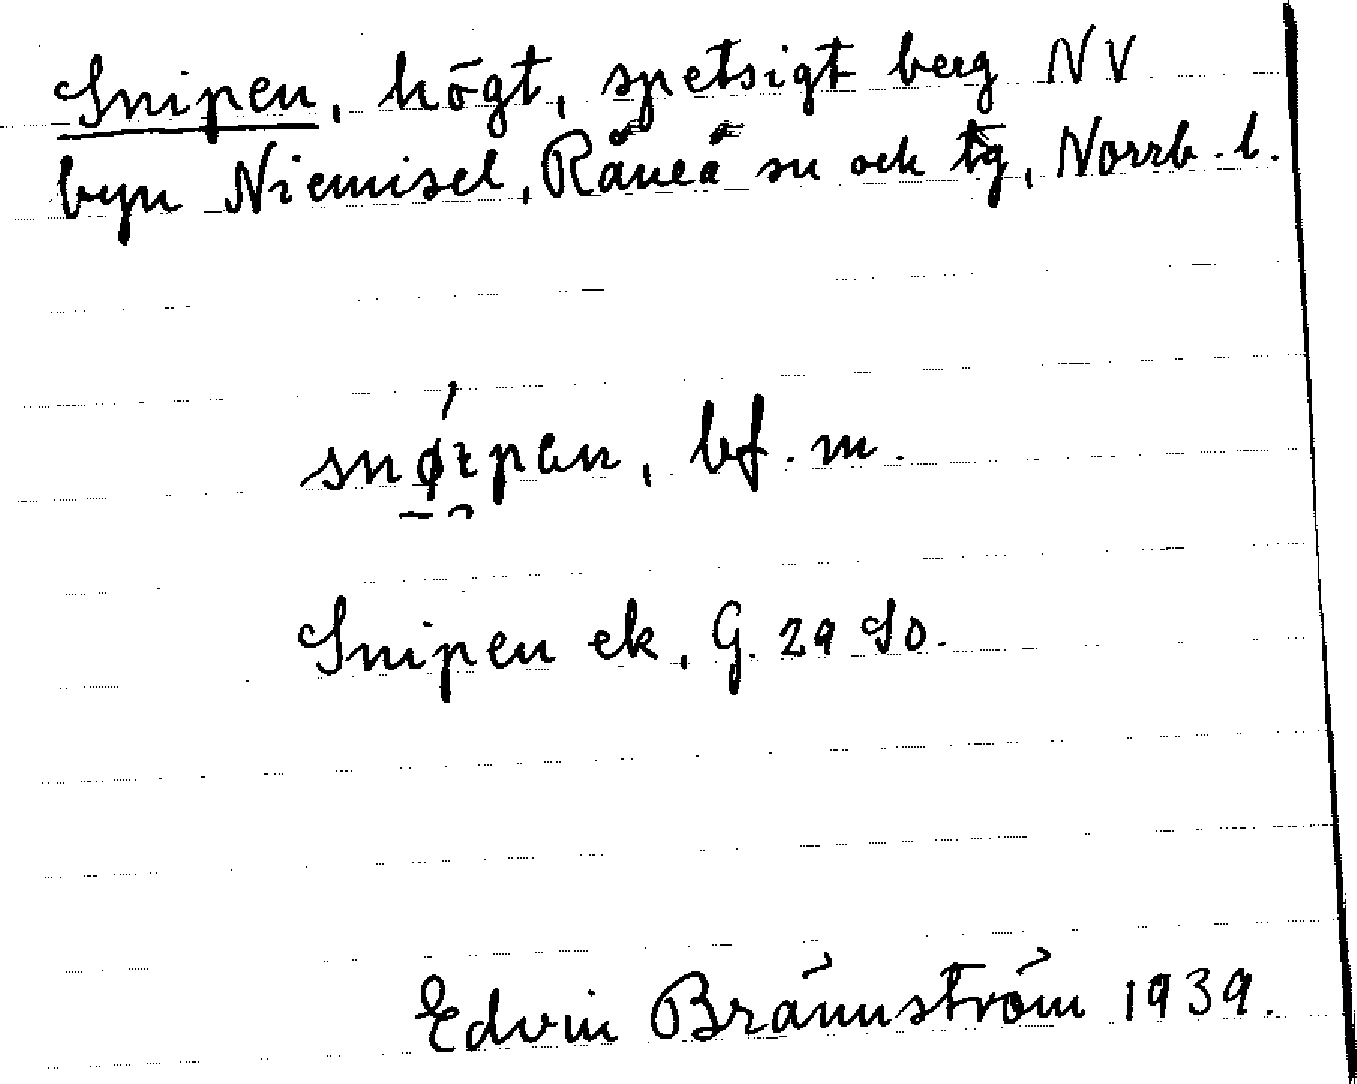 Snipen, högt, spetsigt berg NV
byn Niemisel, Råneå sn ock tg, Norrb. l.
snǿ̱ɩpɐn, bf. m.
Snipen ek. G. 29 SO.
Edvin Brännström 1939.